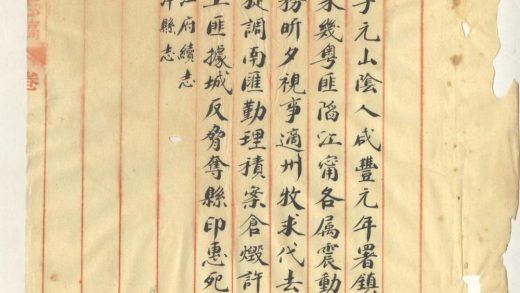 子元山陰人咸豐元年署鎮
未幾粵匪陷江甯各属震動
務昕夕視事適州牧求代去
旋調南匯勤理積案倉燬許
土匪據城反脅奪縣印惠死
江府續志
縣志
卷